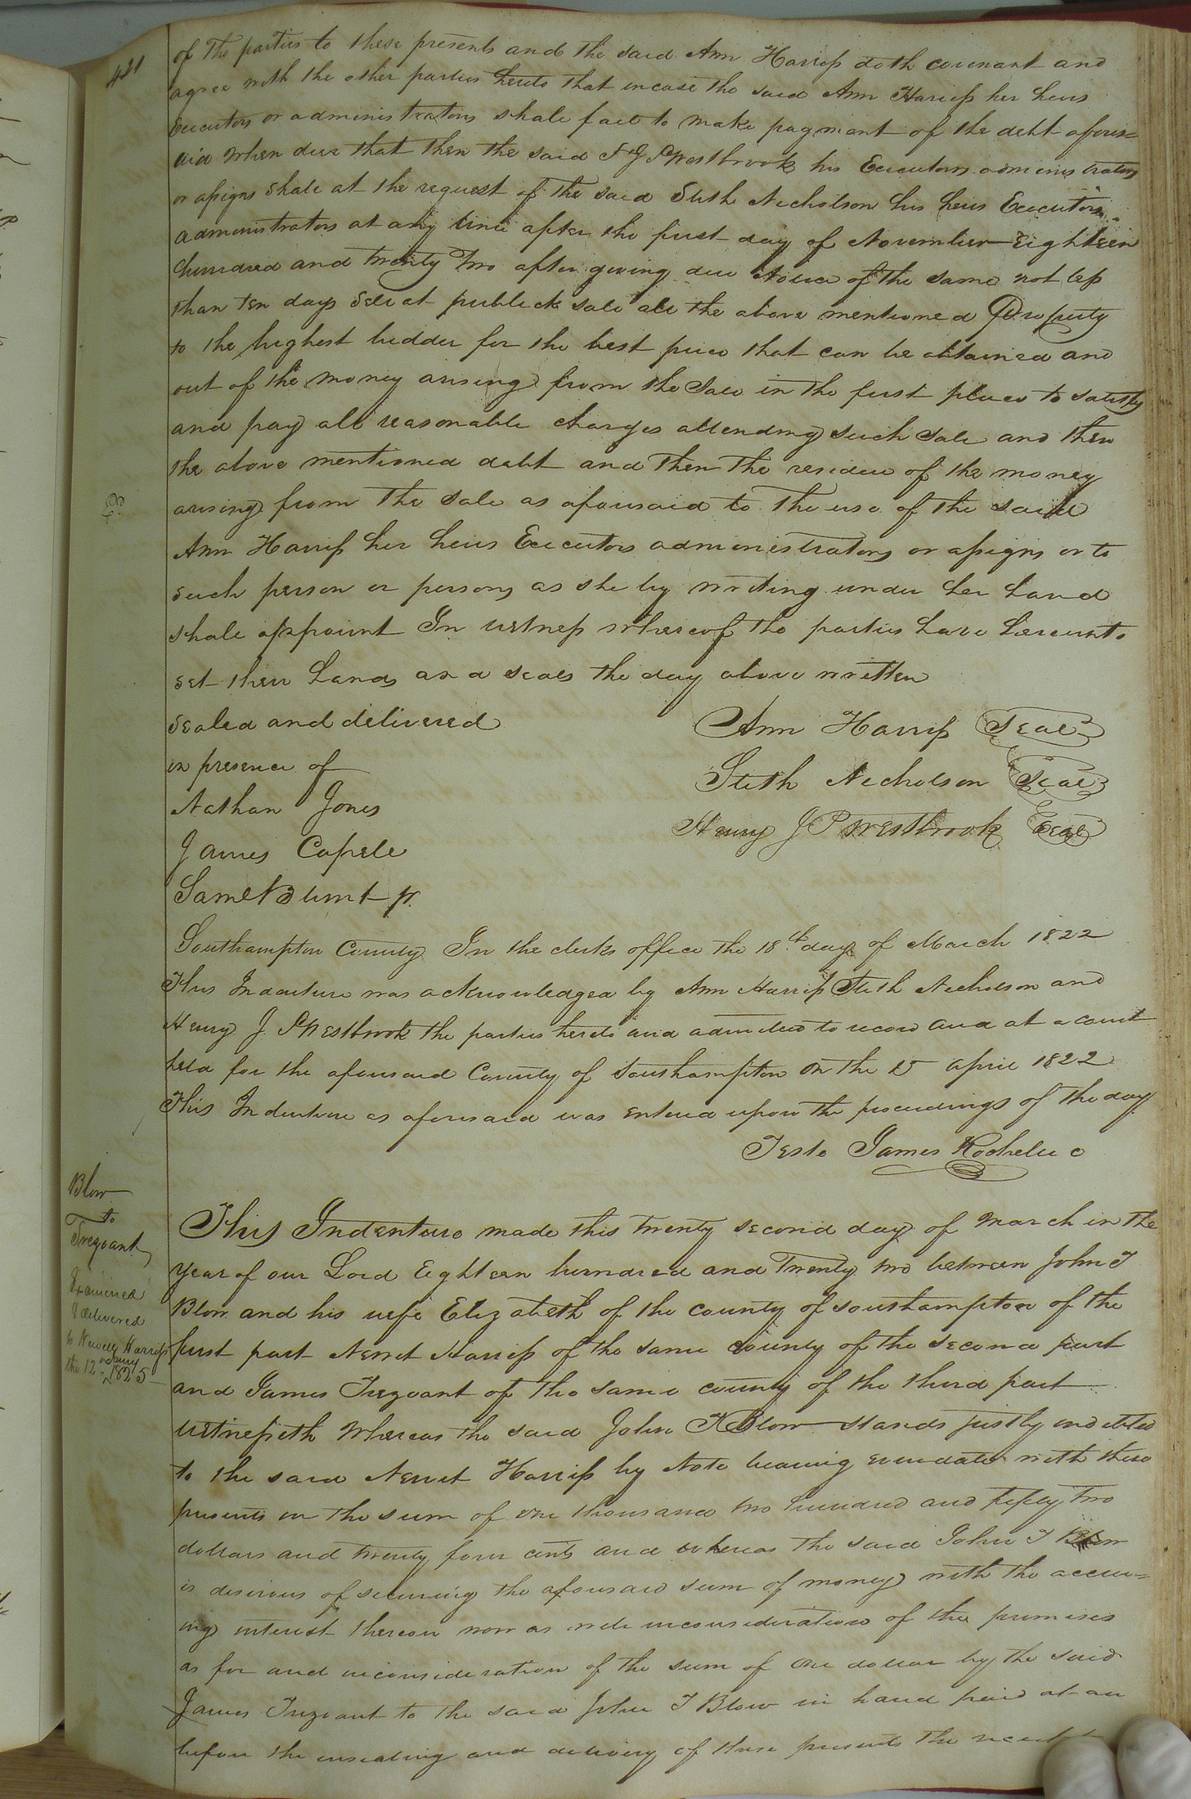 421
of the parties to these presents and the said Ann Harriss doth covenant and
agree with the other parties hereto that incase the said Ann Harriss her heirs
Executors or administrators shall fail to make payment of the debt afores=
aid when due that then the said H J P Westbrook his Executors administrators
or assigns shall at the request of the said Stith Nicholson his heirs Executors
administrators at any time after the first day of November Eighteen
hundred and twenty two after giving due Notice of the same not less
than ten days Sell at publick sale all the above mentioned Property
to the highest bidder for the best price that can be obtained and
out of the money arising from the Sale in the first place to satisfy
and pay all reasonable charges attending such Sale and then
the above mentioned debt and then the residue of the money
arising from the Sale as aforesaid to the use of the said
Ann Harriss her heirs Executors administrators or assigns or to
such person or persons as she by writing under her hand
shall appoint In witness whereof the parties have hereunto
set their hands and seals the day above written
Sealed and delivered
in presence of
Nathan Jones
James Capele
Saml Blunt jr.
Ann Harriss Seal
Stith Nicholson Seal
Henry J P Westbrook Seal
Southampton County In the clerks office the 18th day of March 1822
This Indenture was acknowledged by Ann Harriss Stith Nicholson and
Henry J P Westbrook the parties hereto and admitted to record and at a court
held for the aforesaid County of Southampton on the 15 april 1822
This Indenture as aforesaid was entered upon the proceedings of the day
Teste James Rochelle c
Blow
to
Trezvant
Examined
& delivered
to Newit Harriss
the 12
1825
This Indenture made this twenty second day of March in the
year of our Lord Eighteen hundred and Twenty two between John T
Blow and his wife Elizabeth of the county of Southampton of the
first part Newit Harriss of the same county of the second part
and James Trezvant of the same county of the third part
witnesseth Whereas the said John T Blow stands justly indebted
to the said Newit Harriss by Note bearing evendate with these
presents in the sum of one thousand two hundred and fifty two
dollars and twenty four cents and whereas the said John T Blow
is desirous of securing the aforesaid sum of money with the accru=
ing interest thereon now as well inconsideration of the premises
as for and inconsideration of the sum of one dollar by the said
James Trezvant to the said John T Blow in hand paid at an
before the ensealing and delivery of these presents the